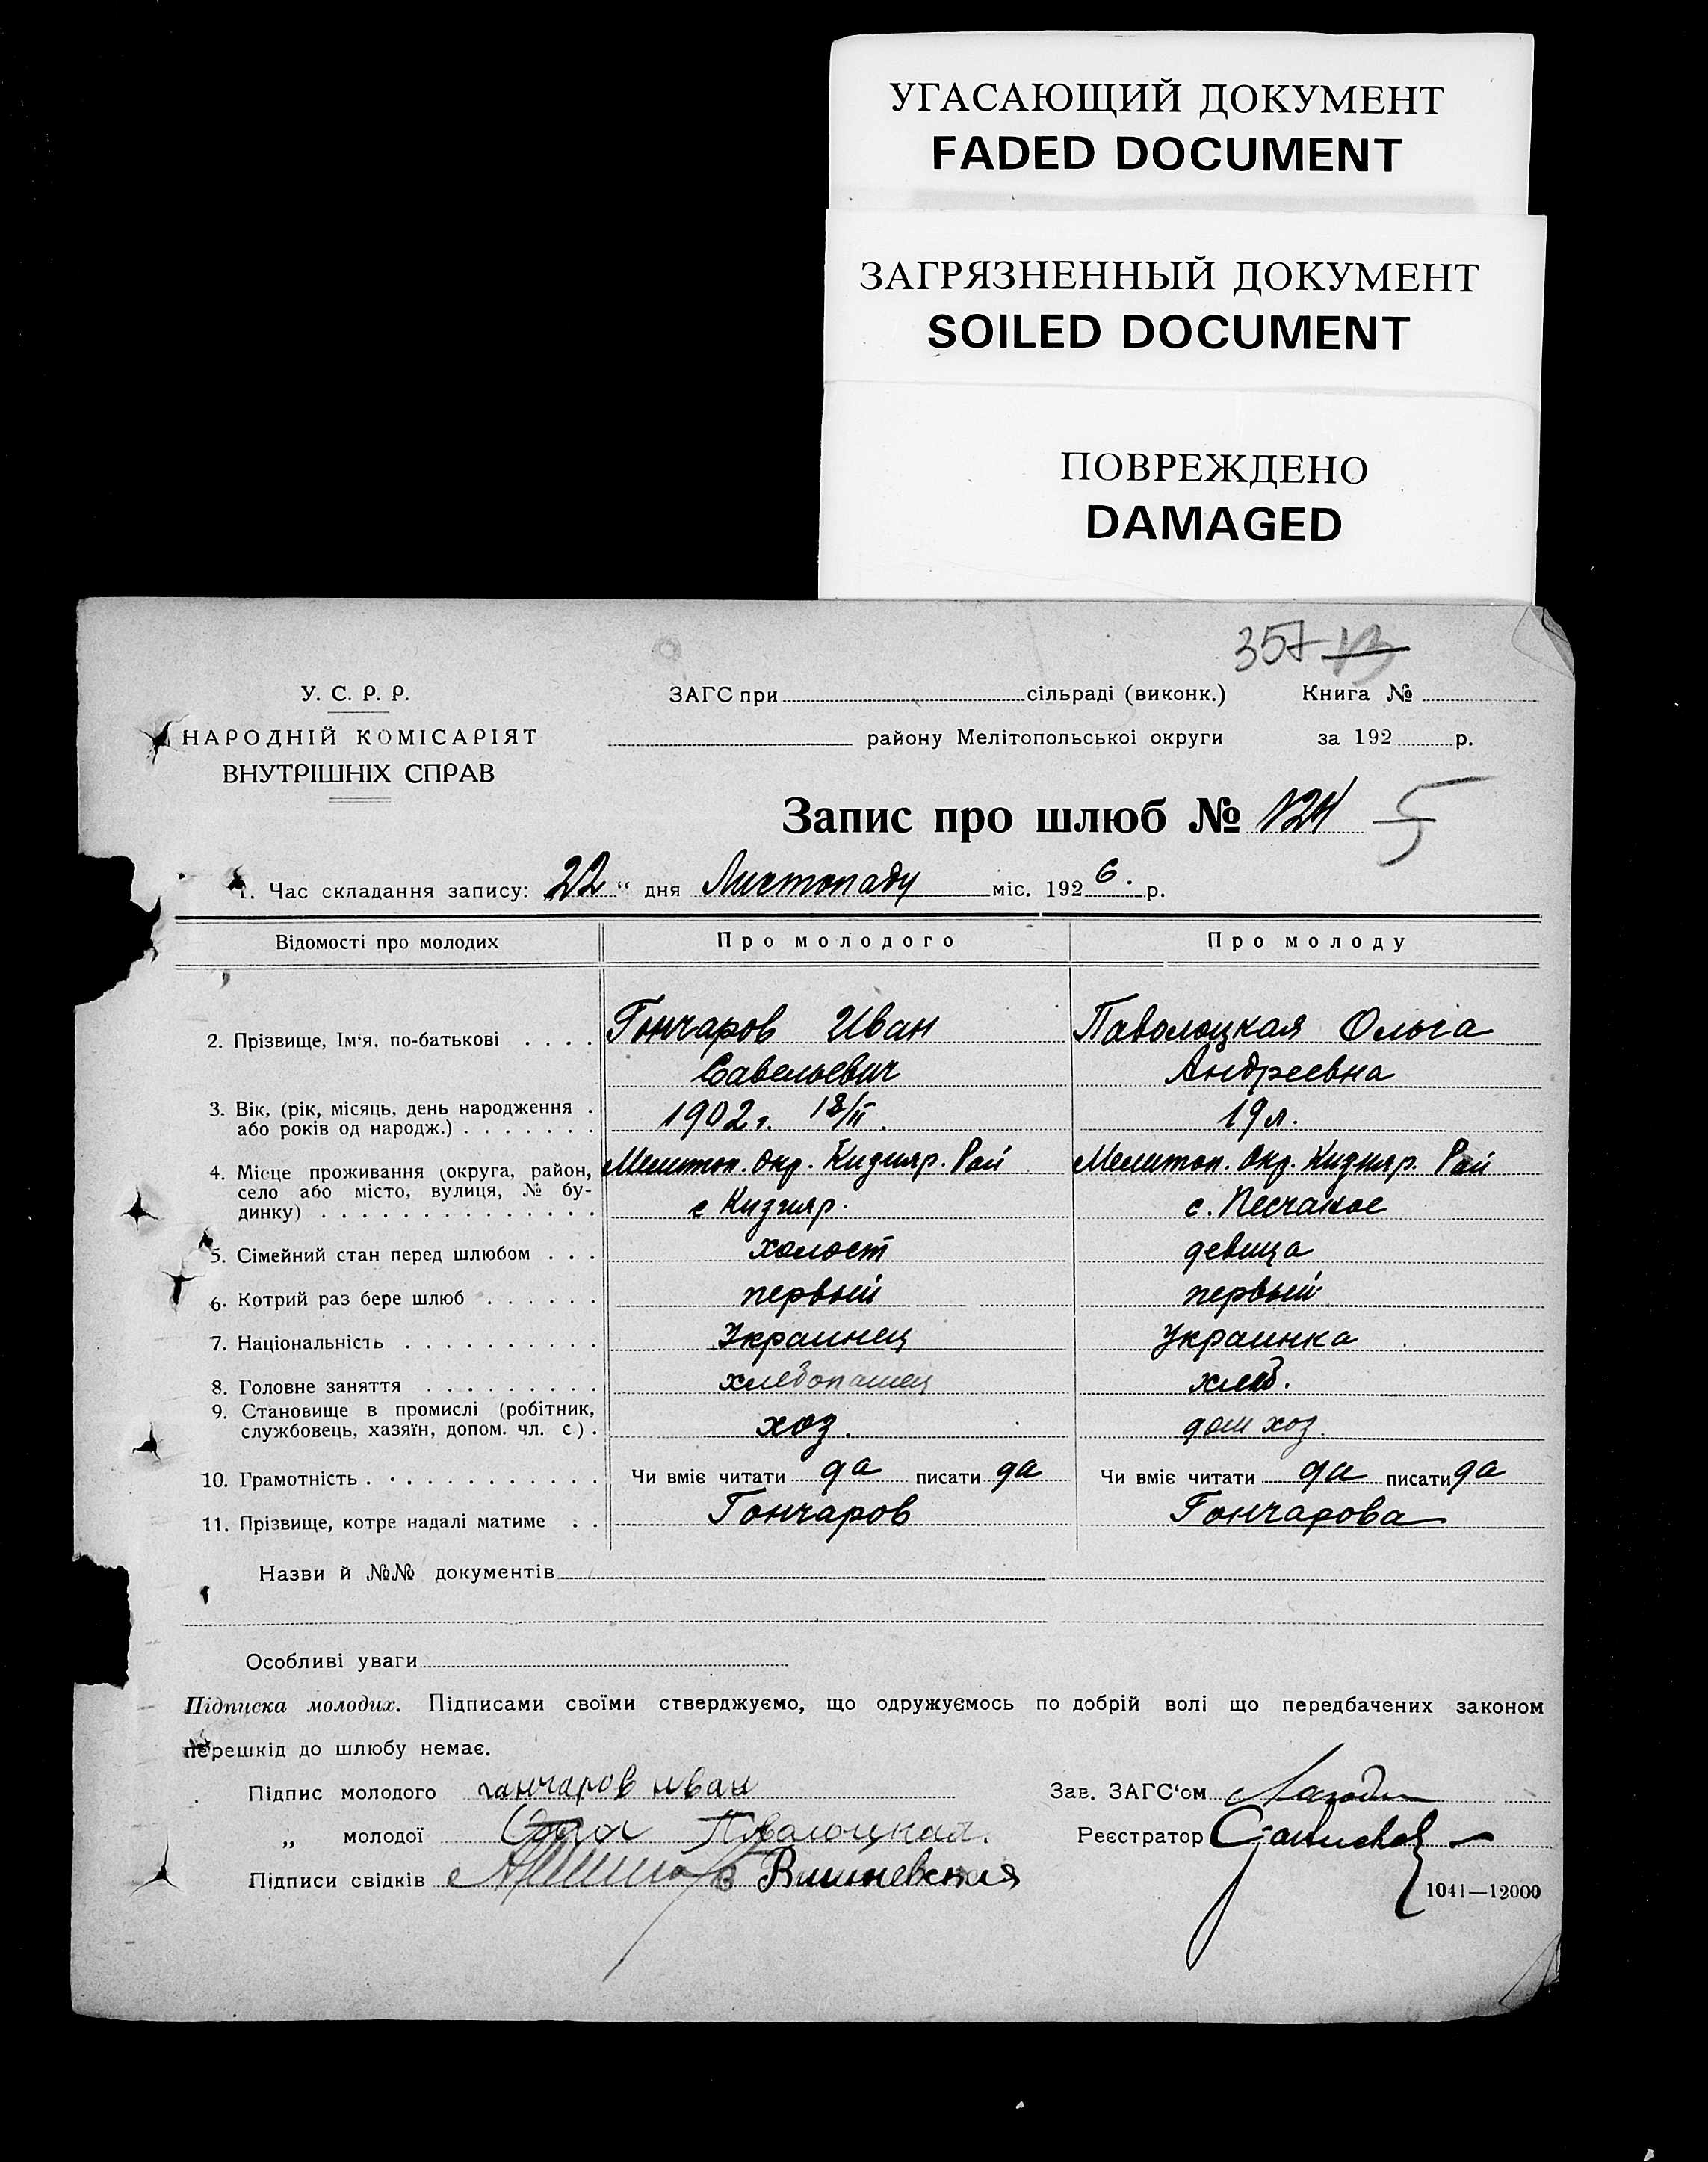 УГАСАЮЩИЙ ДОКУМЕНТ
FADED DOCUMENT
ЗАГРЯЗНЕННЫЙ ДОКУМЕНТ
SOILED DOCUMENT
ПОВРЕЖДЕНО
DAMAGED
357
У. С. Р. Р.
НАРОДНІЙ КОМІСАРІЯТ
ВНУТРІШНІХ СПРАВ
ЗАГС при сільраді (виконк.) Книга №
району Мелітопольської округи за 192 р.
Запис про шлюб № 124 5
1. Час складання запису: 22 “ дня Листопаду міс. 1926. р.
Відомості про молодих Про молодого Про молоду
2. Прізвище, Ім‘я. по-батькові . . . . Гончаров Иван Паволоцкая Ольга
Савельевич Андреевна
3. Вік, (рік, місяць, день народження .
або років од народж.) . . . . . . . 1902 г. 18/II. 19 л.
4. Місце проживання (округа, район, Мелитоп. Окр. Кизияр. Рай Мелитоп. Окр. Кизияр. Рай
село або місто, вулиця, № бу-
динку) . . . . . . . . . . . . . . с Кизияр. с. Песчаное
5. Сімейний стан перед шлюбом . . . холост девица
6. Котрий раз бере шлюб . . . . . . первый первый
7. Національність . . . . . . . . . . Украинец Украинка
8. Головне заняття . . . . . . . . . хлебопашец хлеб.
9. Становище в промислі (робітник,
службовець, хазяїн, допом. чл. с) . хоз. дом хоз.
10. Грамотність . . . . . . . . . . . . Чи вміє читати да писати да Чи вміє читати да писати да
11. Прізвище, котре надалі матиме . . Гончаров Гончарова
Назви й №№ документів
Особливі уваги
Підписка молодих. Підписами своїми стверджуємо, що одружуємось по добрій волі що передбачених законом
перешкід до шлюбу немає.
Підпис молодого ганчаров иван Зав. ЗАГС‘ом
„ молодої Паволоцкая. Реєстратор
Підписи свідків Вишневская
1041—12000